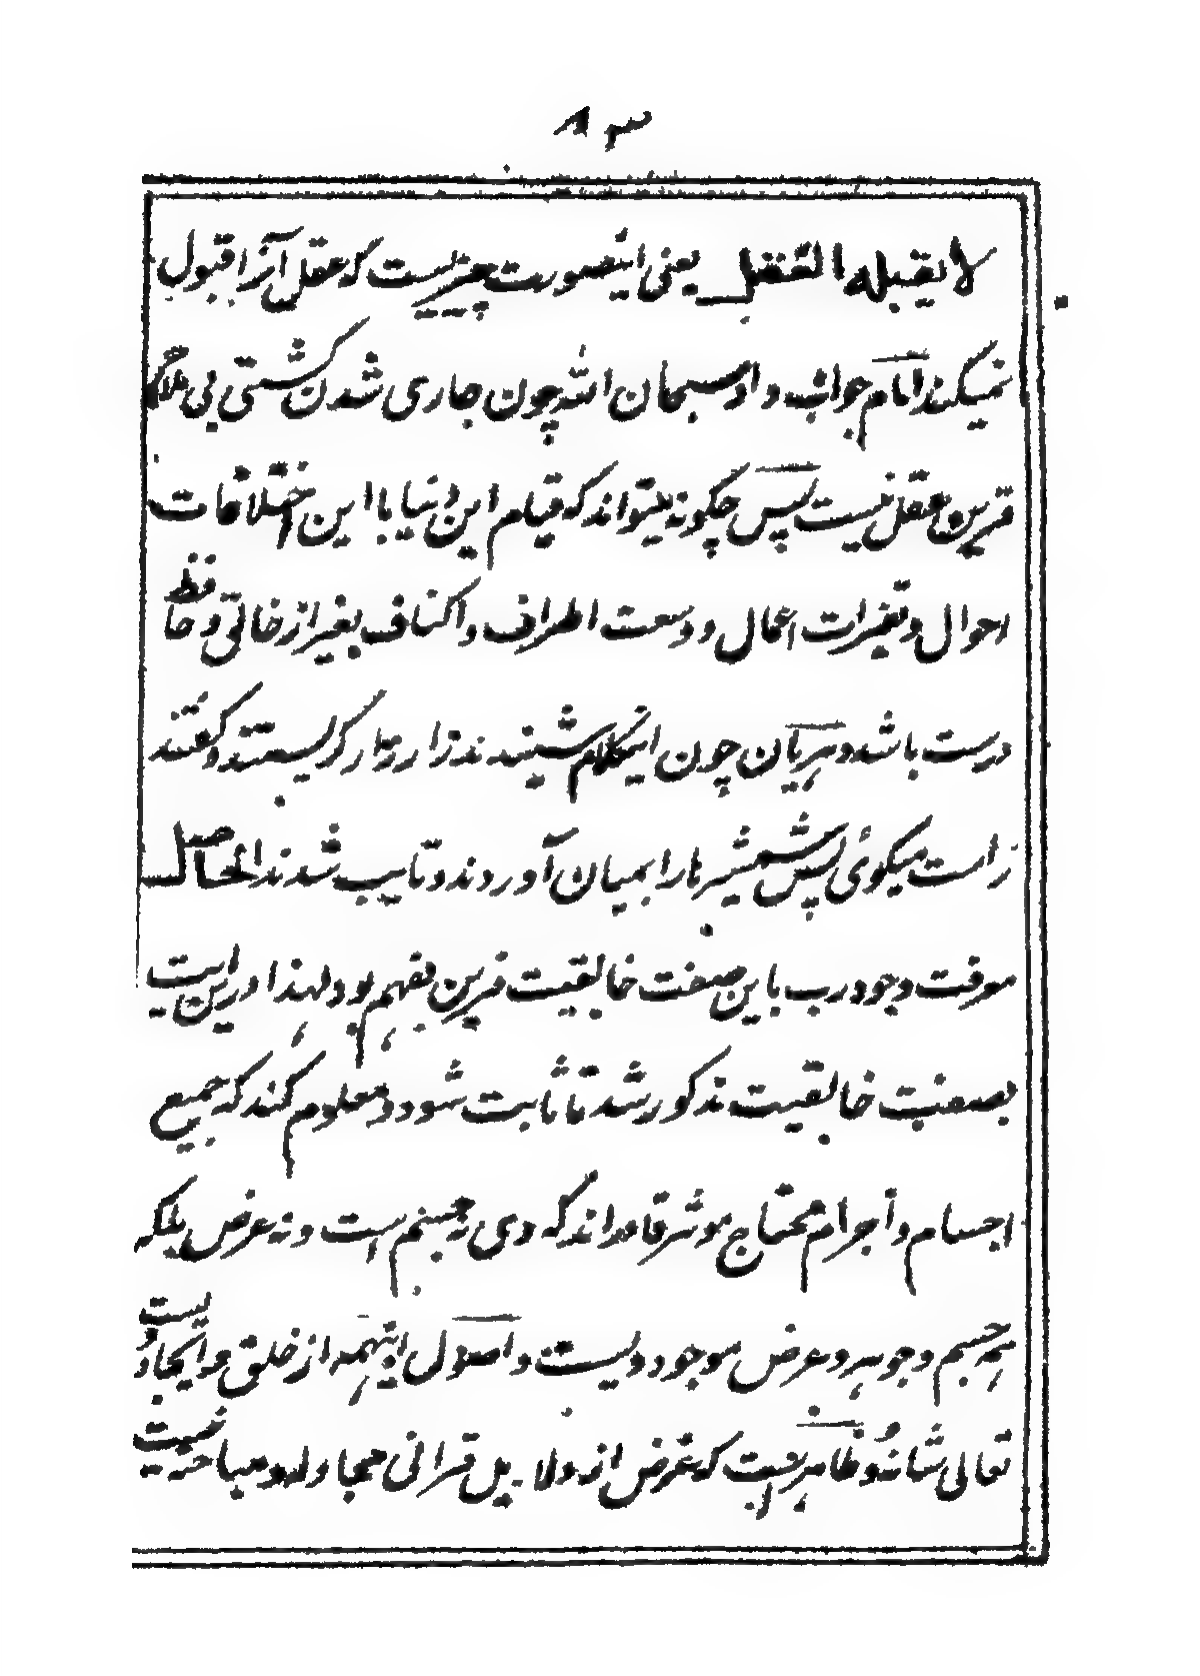 ۸۳
لا یقبله العقل یعنی اینصورت چیزیست که عقل آنرا قبول
نمیکند امام جواب داد سبحان الله چون جاری شدن کشتی بی ملاح
قرین عقل نیست پس چگونه میتواند که قیام این دنیا با این اختلافات
احوال و تغیرات اعمال و وسعت اطراف و اکناف بغیر از خالق و حافظ
درست باشد دهریان چون اینکلام شنیدند زار زار گریستند و گفتند
راست میگوئ پس شمشیر ها را بمیان آوردند و تایب شدند الحاصل
معرفت وجود رب باین صفت خالقیت قرین بفهم بود لهذا درین ایت
بصفت خالقیت مذکور شد تا ثابت شود و معلوم کند که جمیع
اجسام و أجرام محتاج موثر قادراند که وی نه جسم است و نه عرض بلکه
همه جسم و جوهر و عرض موجود ویست و اصول اینهمه از خلق و ایجاد ویست
تعالی شانه و ظاهر است که غرض از دلایل قرانی مجادله و مباحثه نیست